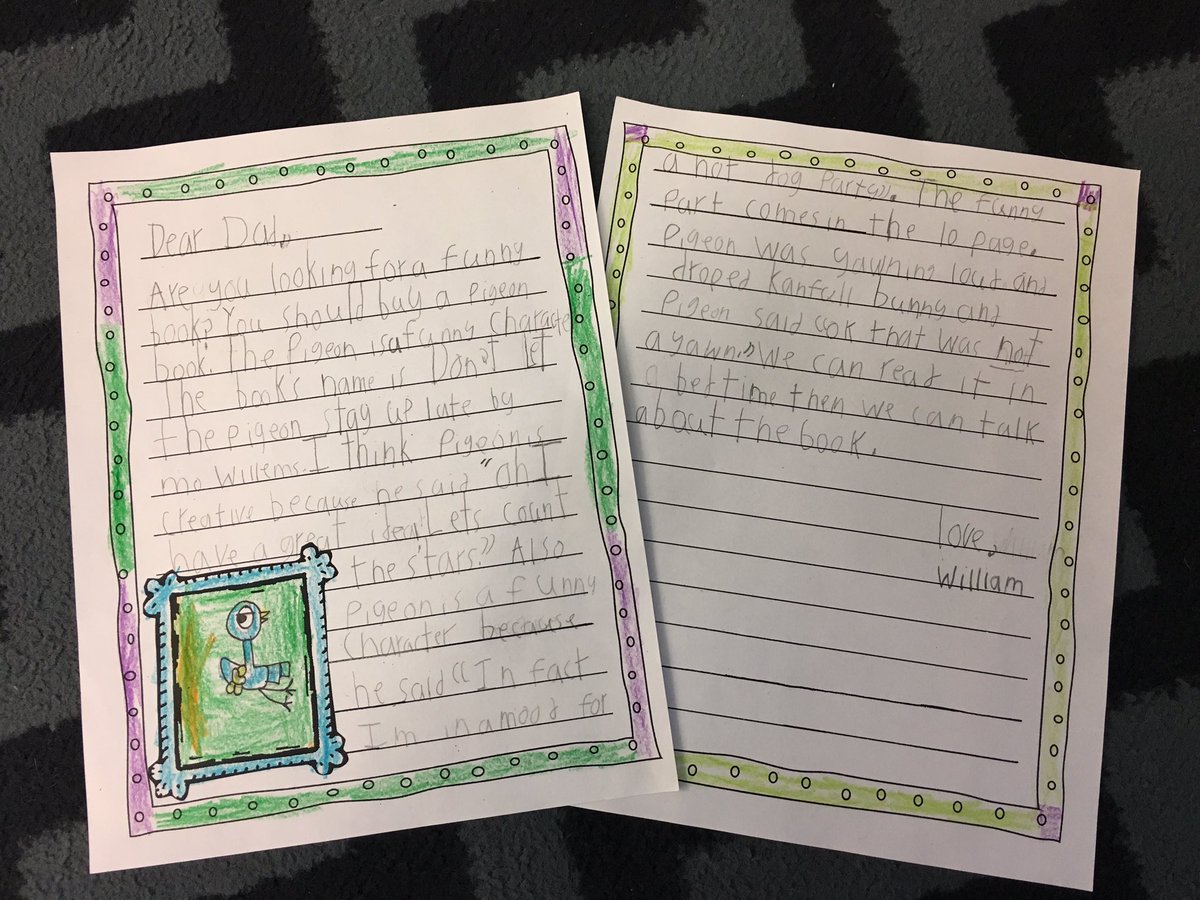 Dear Dad,
Are you looking for a funny
book? You should buy a Pigeon
book. The Pigeon is a funny character
The books name is Don't let
the pigeon stay up late by
mo Willems. I think Pigeon is
creative because he said "oh I
have a great idea! Lets count
the stars." Also
Pigeon is a funny
character because
he said "In fact
I'm in a mood for
a hot dog Party". The funny
part comes in the 10 page.
Pigeon was yawning lout and
droped bunny and
Pigeon said "ok that was not
a yawn." We can read it in
a bettime then we can talk
about the book.
love,
William